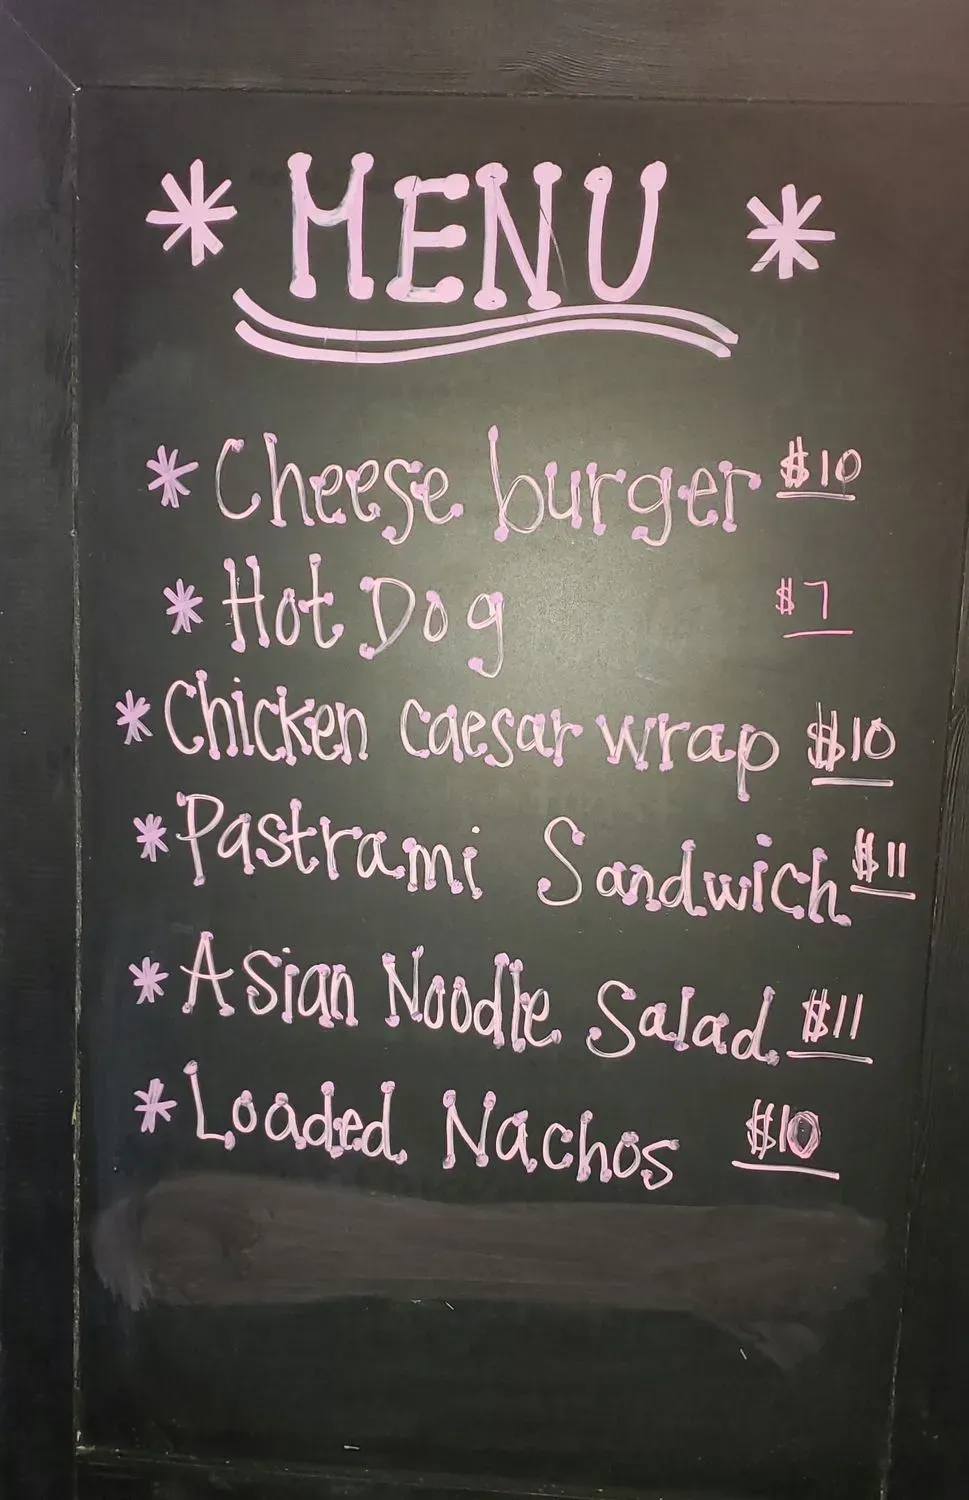 * MENU *
* Cheese burger $10
* Hot Dog $7
* Chicken caesar wrap $10
* Pastrami Sandwich $11
* Asian Noodle Salad $11
* Loaded Nachos $10